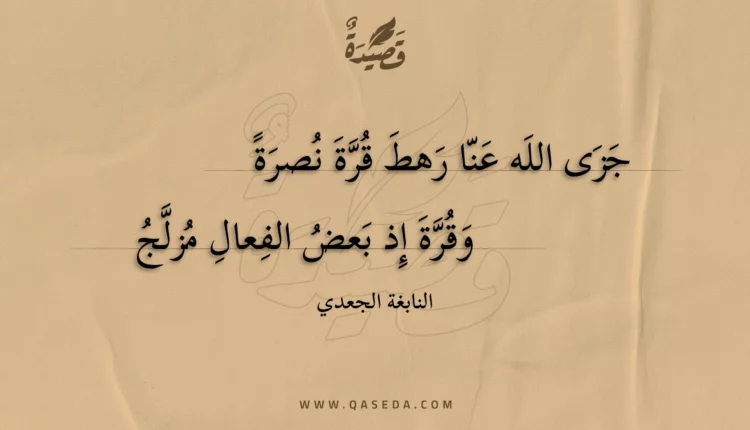 قَصِيدَةٌ
جَزَى اللَه عَنّا رَهطَ قُرَّةَ نُصرَةً
وَقُرَّةَ إِذ بَعضُ الفِعالِ مُزلَّجُ
النابغة الجعدي
WWW.QASEDA.COM